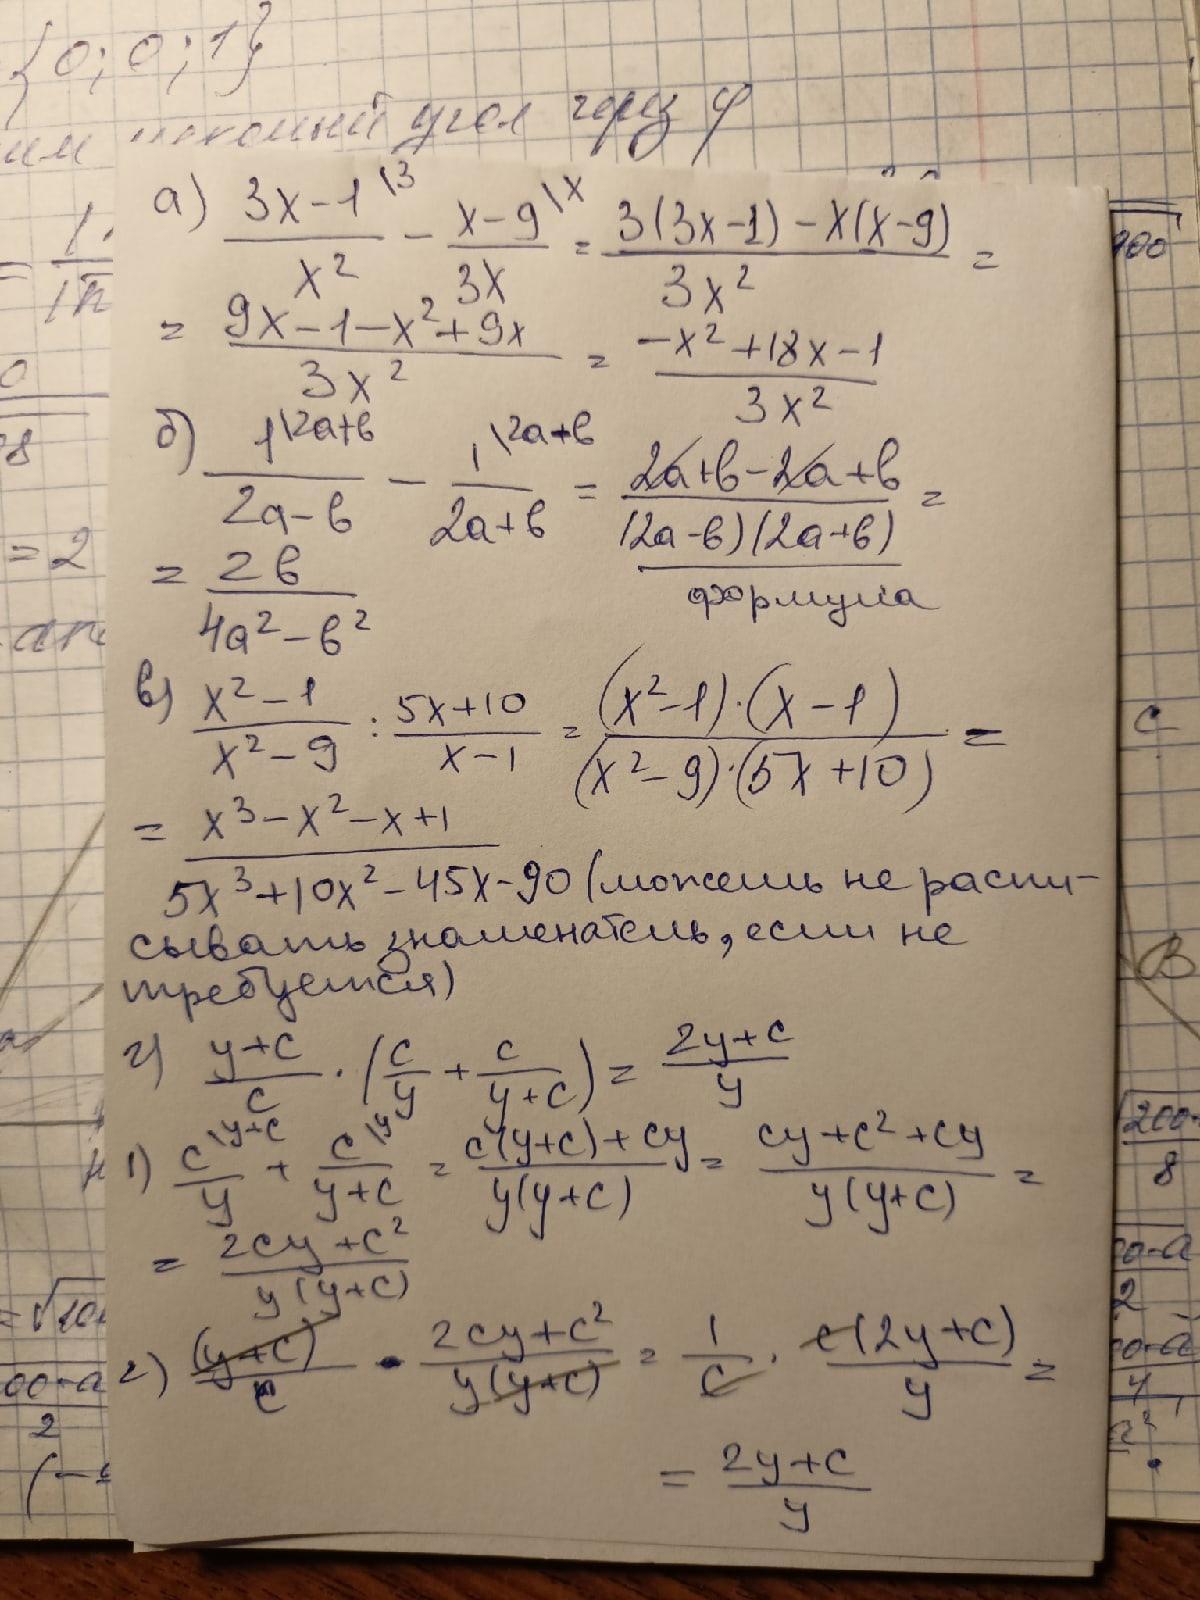 {0; 0; 1}
угол через φ
а) (3x-1)/x² \3 - (x-9)/3x \x = (3(3x-1) - x(x-9))/3x² =
= (9x-1-x²+9x)/3x² = (-x²+18x-1)/3x²
б) 1/(2a-b) \2a+b - 1/(2a+b) \2a+b = (2a+b-2a+b)/((2a-b)(2a+b)) =
формула
= 2b/(4a²-b²)
в) (x²-1)/(x²-9) : (5x+10)/(x-1) = ((x²-1)·(x-1))/((x²-9)·(5x+10)) =
= (x³-x²-x+1)/(5x³+10x²-45x-90) (можешь не распи-
сывать знаменатель, если не
требуется)
г) (y+c)/c · (c/y + c/(y+c)) = (2y+c)/y
1) c/y \y+c + c/(y+c) \y = (c(y+c)+cy)/(y(y+c)) = (cy+c²+cy)/(y(y+c)) =
= (2cy+c²)/(y(y+c))
2) (y+c)/c · (2cy+c²)/(y(y+c)) = 1/c · c(2y+c)/y =
= (2y+c)/y
= 2
C
B